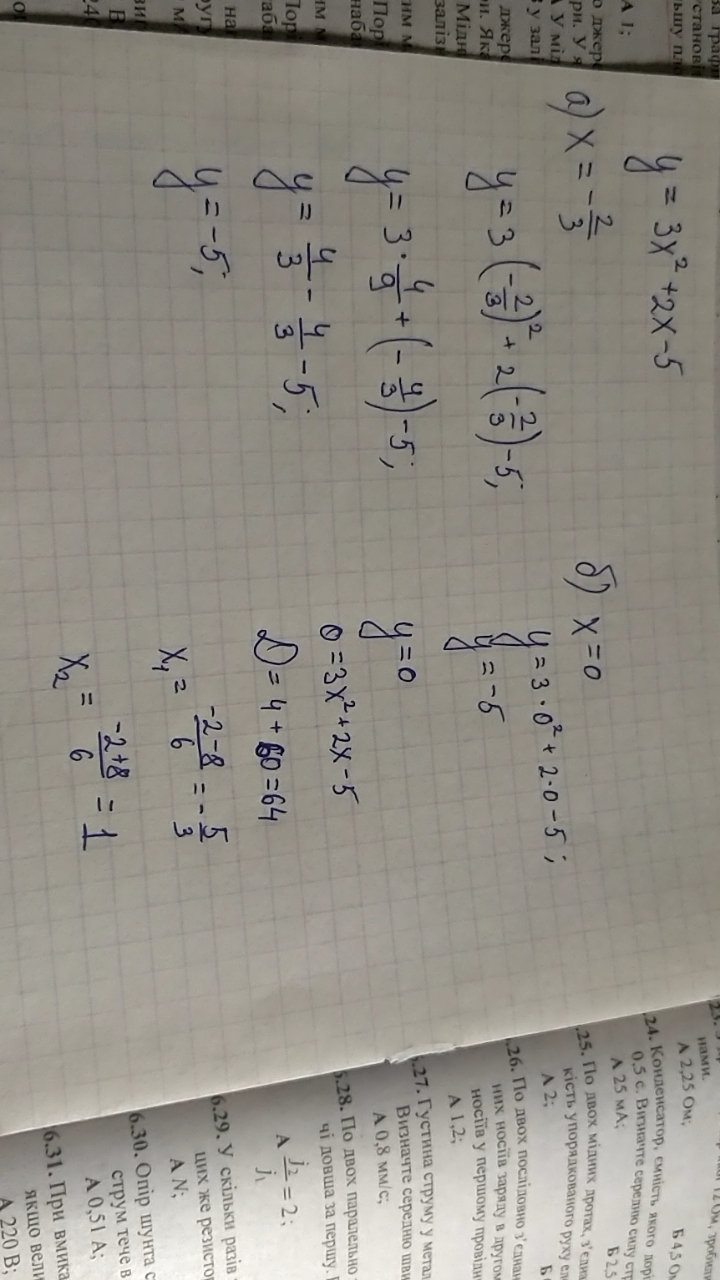 y = 3x² + 2x - 5
а) x = -2/3
y = 3(-2/3)² + 2(-2/3) - 5;
y = 3·4/9 + (-4/3) - 5;
y = 4/3 - 4/3 - 5;
y = -5;
б) x = 0
y = 3·0² + 2·0 - 5;
y = -5
y = 0
0 = 3x² + 2x - 5
D = 4 + 60 = 64
x₁ = (-2-8)/6 = -5/3
x₂ = (-2+8)/6 = 1
нами.
А 2,25 Ом;
Б 4,5 О
24. Конденсатор, ємність якого дор
0,5 с. Визначте середню силу ст
А 25 мА;
Б 2,5
.25. По двох мідних дротах, з'єдна
кість упорядкованого руху ел
А 2;
Б
.26. По двох послідовно з'єдна
них носіїв заряду в другом
носіїв у першому провідни
А 1,2;
.27. Густина струму у метал
Визначте середню шви
А 0,8 мм/с;
6.28. По двох паралельно
чі довша за першу.
А j₂/j₁ = 2;
6.29. У скільки разів
цих же резистор
А N;
6.30. Опір шунта с
струм тече в
А 0,51 А;
6.31. При вмика
якщо вели
А 220 В;